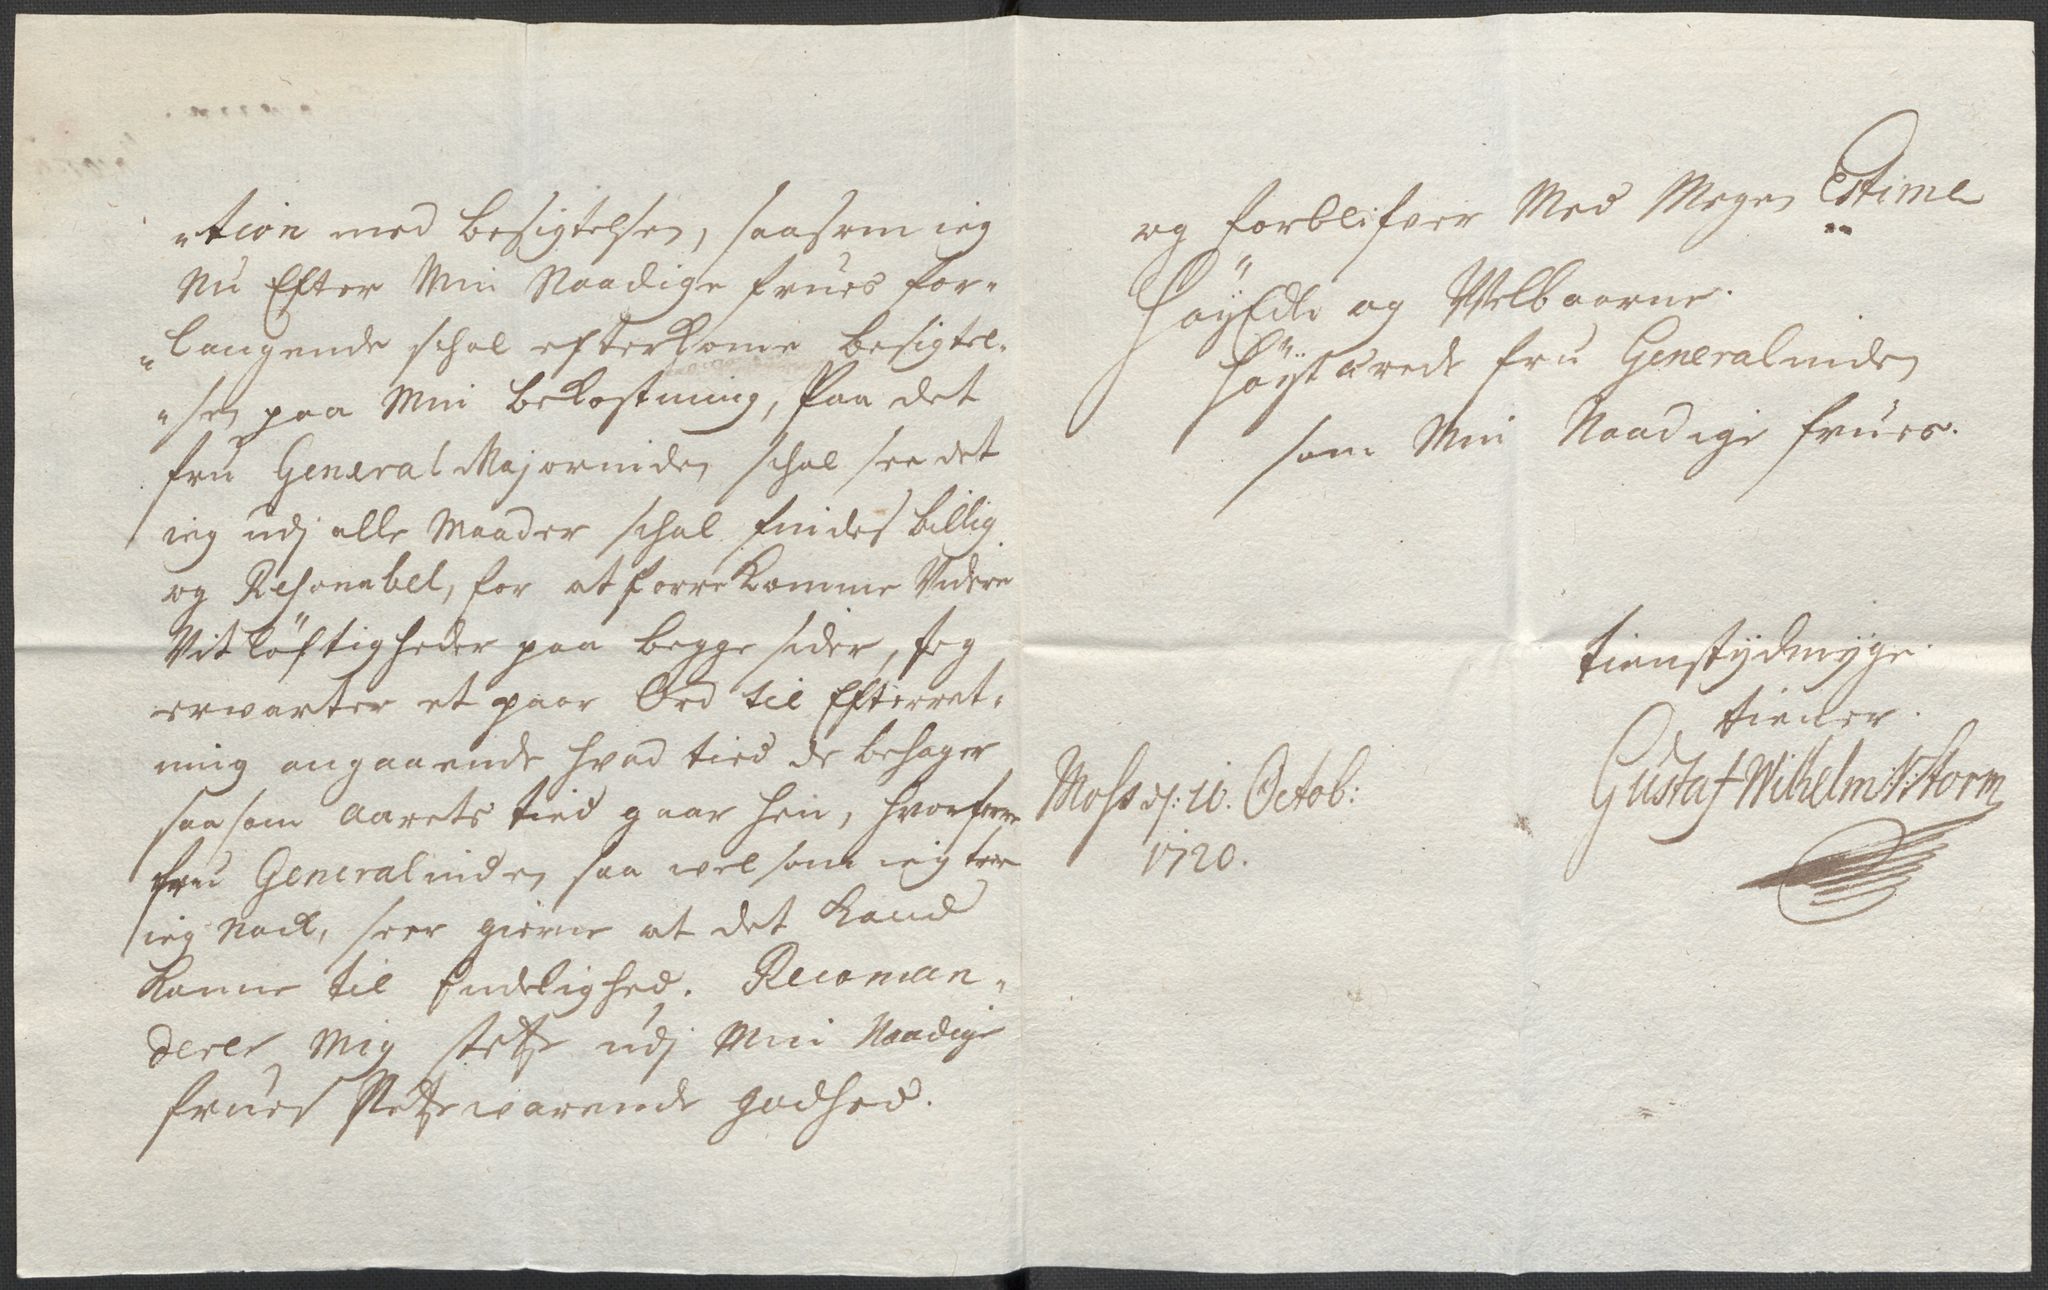 "tion med besigtelsen, saasom ieg
Nu Efter Min Naadige frues for"
"langende schal efterkome besigtel"
"sen paa Min bekostning, Paa det
fru General Majorinden schal see det
ieg udj alle Maader schal findes billig
og Resonabel, for at forrekomme Videre
Vitløftigheder paa begge sider, Jeg
erwarter et paar Ord til Efterret"
ning angaaende hvad tied de behager
saasom aarets tied gaar hen, hvorforre
fru Generalinden saa wel som ieg troer
ieg Nock, seer gierne at det kand
komme til Endelighed. Recoman"
derer Mig stetze udj Min Naadige
frues Stetzewarende godhed.
og forblifver Med Megen Estime
HøyEdle og Welbaarne
Høystærede fru Generalinden
som Min Naadige frues.
tienstydmyge
tiener.
Gustaf Wilhelm Storm
Moss d: 10. Octob:
1720.